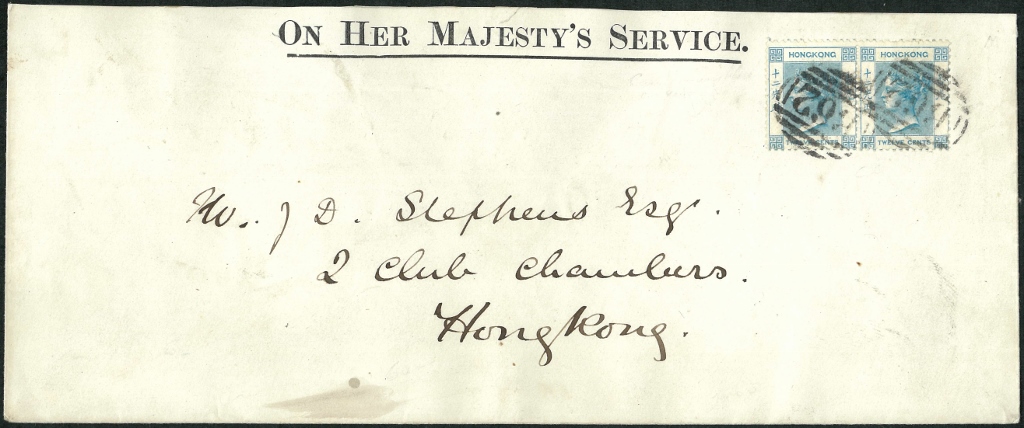 ON HER MAJESTY'S SERVICE.
HONGKONG HONGKONG
TWELVE CENTS TWELVE CENTS
J D. Stephens Esq.
2 Club Chambers.
Hongkong.